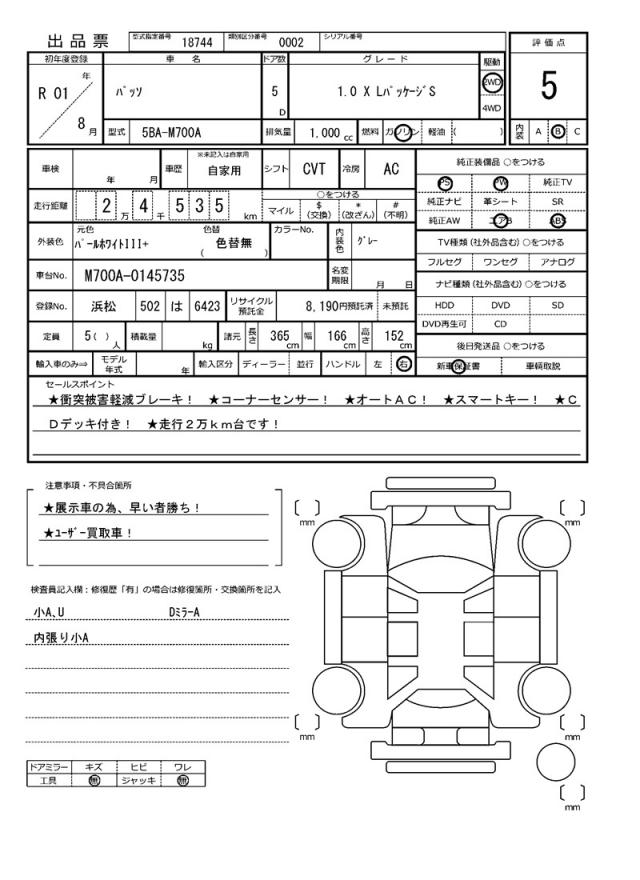 出品票 型式指定番号 18744 類別区分番号 0002 シリアル番号
評価点
5
初年度登録 車名 ドア数 グレード 駆動
R 01 年 8 月 パッソ 5 D 1.0 X LパッケージS 2WD 4WD
型式 5BA-M700A 排気量 1,000 cc 燃料 ガソリン 軽油 ( ) 内装 A B C
車検 年 月 車歴 ※未記入は自家用 自家用 シフト CVT 冷房 AC
純正装備品 ○をつける
PS PW 純正TV
純正ナビ 革シート SR
純正AW エアB ABS
走行距離 2 万 4 千 5 3 5 km
○をつける
マイル $ (交換) * (改ざん) # (不明)
外装色 元色 パールホワイトIII+ 色替 ( 色替無 ) カラーNo. 内装色 グレー
TV種類 (社外品含む) ○をつける
フルセグ ワンセグ アナログ
車台No. M700A-0145735 名変期限 月 日
ナビ種類 (社外品含む) ○をつける
HDD DVD SD
DVD再生可 CD
登録No. 浜松 502 は 6423 リサイクル預託金 8,190円預託済 未預託
定員 5( ) 人 積載量 kg 諸元 長さ 365 cm 幅 166 cm 高さ 152 cm
後日発送品 ○をつける
新車保証書 車輌取説
輸入車のみ⇒ モデル年式 年 輸入区分 ディーラー 並行 ハンドル 左 右
セールスポイント
★衝突被害軽減ブレーキ! ★コーナーセンサー! ★オートAC! ★スマートキー! ★C
Dデッキ付き! ★走行2万km台です!
注意事項・不具合箇所
★展示車の為、早い者勝ち!
★ユーザー買取車!
検査員記入欄:修復歴「有」の場合は修復箇所・交換箇所を記入
小A、U Dミラ-A
内張り小A
ドアミラー キズ ヒビ ワレ
工具 無 ジャッキ 無
mm
mm
mm
mm
mm